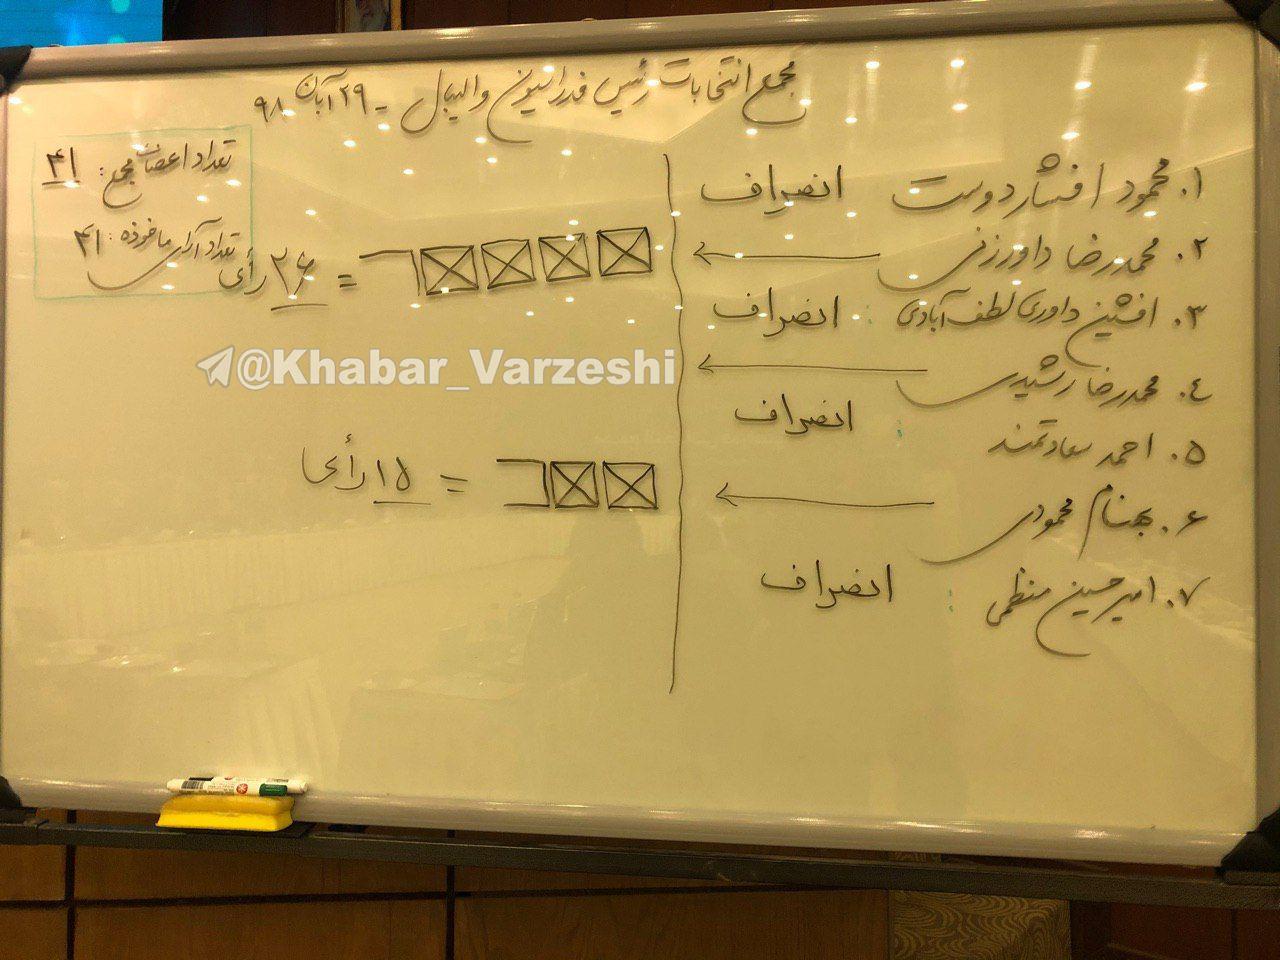 مجمع انتخابات رئیس فدراسیون والیبال - ۲۹ آبان ۹۸
تعداد اعضاء مجمع: ۴۱
تعداد آرای ماخوذه: ۴۱
۱. محمود افشاردوست انصراف
۲. محمدرضا داورزنی = ۲۶ رأی
۳. افشین داوری لطف آبادی : انصراف
۴. محمدرضا رشیدی
۵. احمد سعادتمند : انصراف
۶. بهنام محمودی = ۱۵ رأی
۷. امیرحسین منظمی : انصراف
@Khabar_Varzeshi